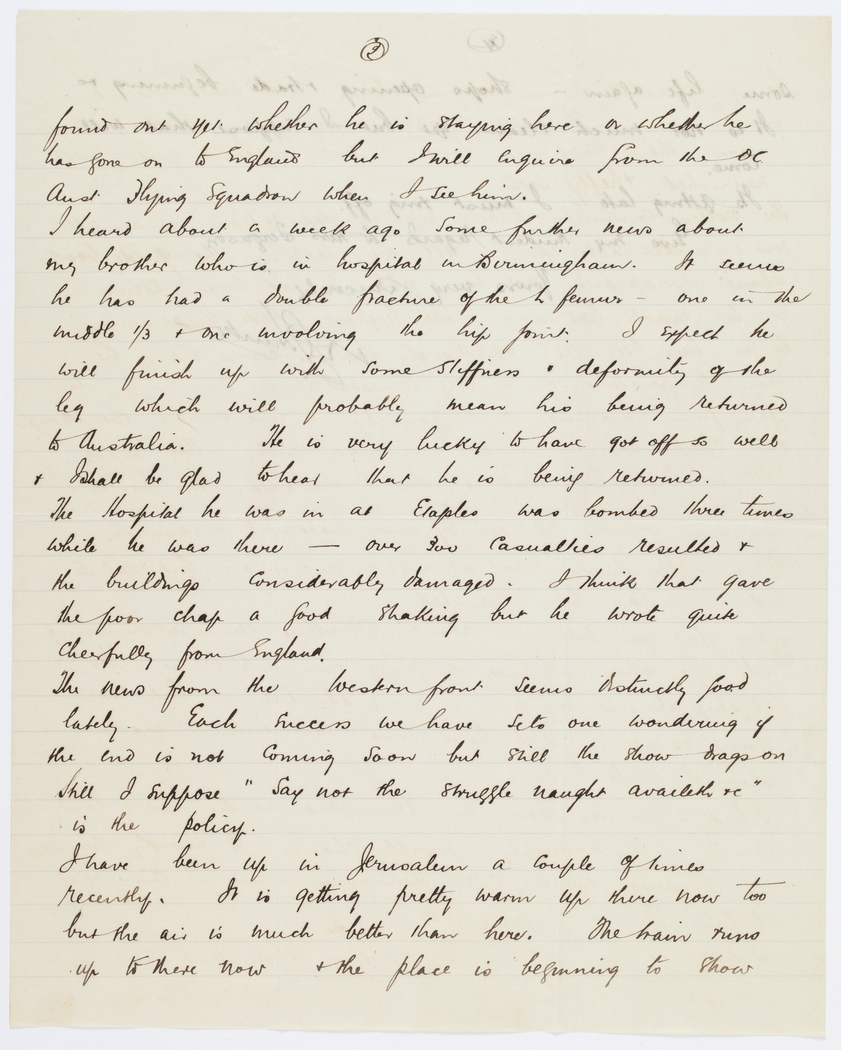 2
found out yet whether he is staying here or whether he
has gone on to England but I will enquire from the OC
Aust Flying Squadron when I see him.
I heard about a week ago some further news about
my brother who is in hospital in Birmingham. It seems
he has had a double fracture of the L femur - one in the
middle 1/3 & one involving the hip joint. I expect he
will finish up with some stiffness & deformity of the
leg which will probably mean his being returned
to Australia. He is very lucky to have got off so well
& I shall be glad to hear that he is being returned.
The Hospital he was in at Etaples was bombed three times
while he was there — over 300 casualties resulted &
the buildings considerably damaged. I think that gave
the poor chap a good shaking but he wrote quite
cheerfully from England.
The news from the Western front seems distinctly good
lately. Each success we have sets one wondering if
the end is not coming soon but still the show drags on
Still I suppose "Say not the struggle naught availeth &c"
is the policy.
I have been up in Jerusalem a couple of times
recently. It is getting pretty warm up there now too
but the air is much better than here. The train runs
up to there now & the place is beginning to show